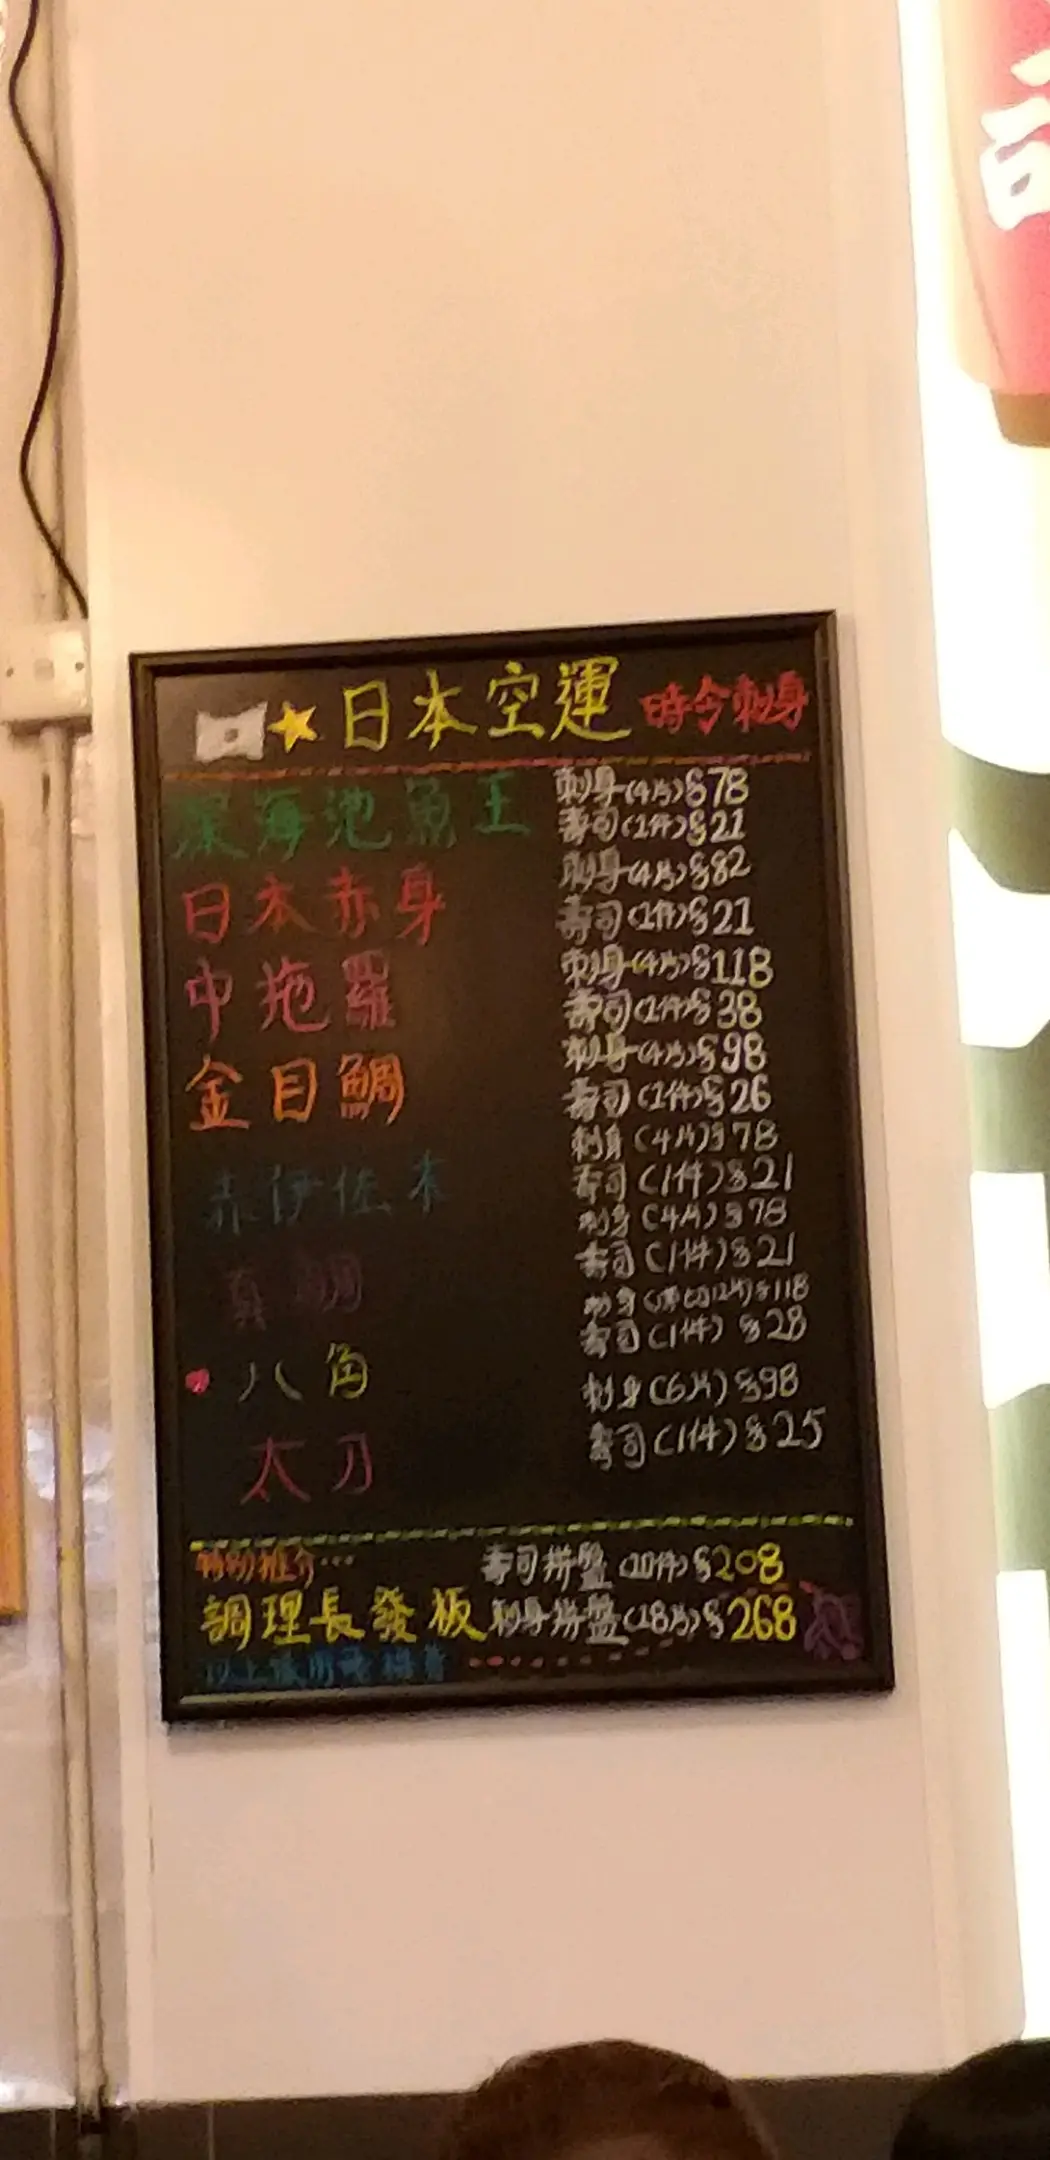 日本空運 時令刺身
深海池魚王 刺身(4片)$78
壽司(1件)$21
日本赤身 刺身(4片)$82
壽司(1件)$21
中拖羅 刺身(4片)$118
壽司(1件)$38
金目鯛 刺身(4片)$98
壽司(1件)$26
赤伊佐木 刺身(4片)$78
壽司(1件)$21
真鯛 刺身(4片)$78
壽司(1件)$21
八角 刺身 $118
壽司(1件)$28
太刀 刺身(6片)$98
壽司(1件)$25
特別推介... 壽司拼盤(10件)$208
調理長發板 刺身拼盤(18片)$268
以上